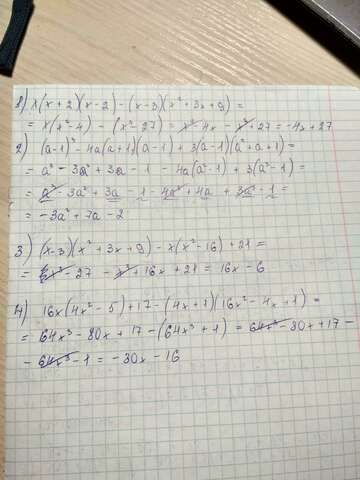 1) x(x+2)(x-2)-(x-3)(x²+3x+9)=
= x(x²-4) - (x³-27) = x³-4x-x³+27 = -4x+27
2) (a-1)³-4a(a+1)(a-1)+3(a-1)(a²+a+1)=
= a³-3a²+3a-1-4a(a²-1)+3(a³-1)=
= a³-3a²+3a-1-4a³+4a+3a³-1=
= -3a²+7a-2
3) (x-3)(x²+3x+9)-x(x²-16)+21=
= x³-27-x³+16x+21=16x-6
4) 16x(4x²-5)+17-(4x+1)(16x²-4x+1)=
= 64x³-80x+17-(64x³+1)=64x³-80x+17-
- 64x³-1=-30x-16